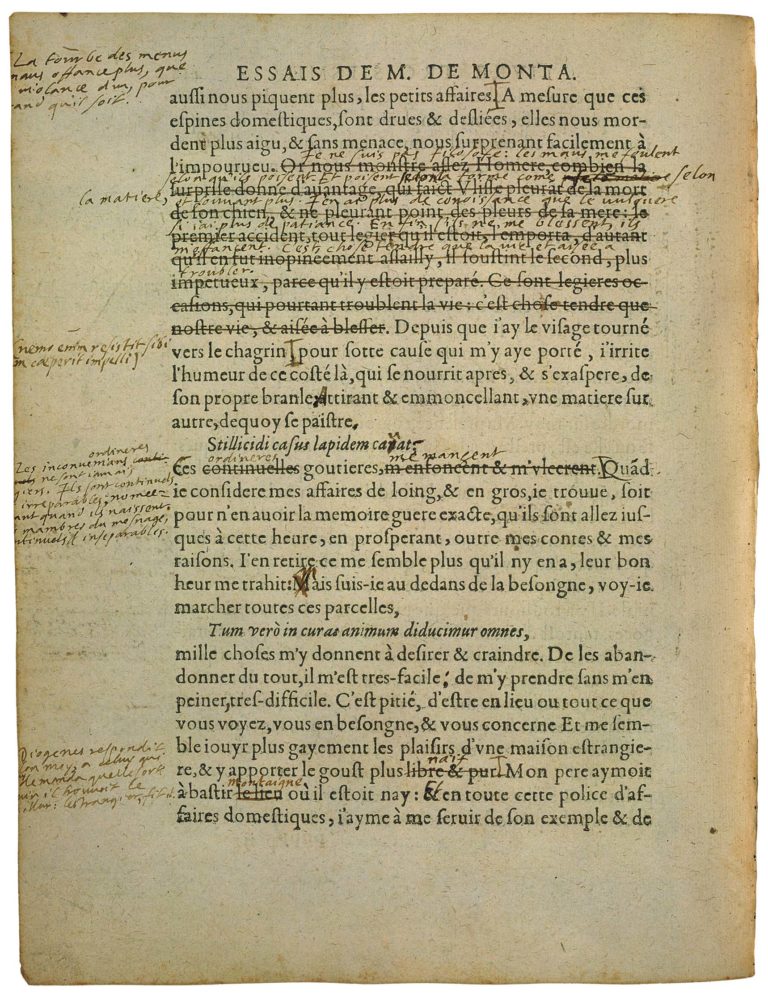 La tourbe des menus
maus offance plus, que
violance d'un, pour
grand qu'il soit.
ESSAIS DE M. DE MONTA.
aussi nous piquent plus, les petits affaires. A mesure que ces
espines domestiques, sont drues & desliées, elles nous mor-
dent plus aigu, & sans menace, nous surprenant facilement à
l'impourueu. Or nous monstre assez Homere, combien la
Ie ne suis pas filosofe: les maus me foulent
selon qu'ils poisent: Et poisent selon la forme come selon
surprise donne d'auantage, qui faict Vlisse pleurat de la mort
la matiere, et souvant plus. I'en ai plus de conoissance que le vulguere
de son chien, & ne pleurant point des pleurs de la mere: le
si j'ai plus de patiance. En fin s'ils ne me blessent ils
premier accident, tout legier qu'il estoit, l'emporta, d'autant
m'offancent. C'est chose tendre que la vie et aisee a
qu'il en fut inopinéement assailly, il soustint le second, plus
troubler.
impetueux, parce qu'il y estoit preparé. Ce sont legieres oc-
casions, qui pourtant troublent la vie: c'est chose tendre que
nostre vie, & aisée à blesser. Depuis que i'ay le visage tourné
vers le chagrin, pour sotte cause qui m'y aye porté, i'irrite
nemo enim resistit sibi
cœperit impelli
l'humeur de ce costé là, qui se nourrit apres, & s'exaspere, de
son propre branle, Attirant & emmoncellant, vne matiere sur
autre, dequoy se paistre.
Stillicidi casus lapidem cauat.
ordineres m'e mangent
Ces continuelles goutieres, m'enfoncent & m'vlcerent. Quãd
Les inconvenians ordineres
ne sont iamais
legiers. Ils sont continuels
irreparables, nomee-
ant quand ils naissent
mambres du mesnage,
continuels & inseparables.
ie considere mes affaires de loing, & en gros, ie trouue, soit
pour n'en auoir la memoire guere exacte, qu'ils sont allez ius-
ques à cette heure, en prosperant, outre mes contes & mes
raisons. I'en retire ce me semble plus qu'il ny en a, leur bon
heur me trahit: Mais suis-ie au dedans de la besongne, voy-ie
marcher toutes ces parcelles,
Tum verò in curas animum diducimur omnes,
mille choses m'y donnent à desirer & craindre. De les aban-
donner du tout, il m'est tres-facile: de m'y prendre sans m'en
peiner, tres-difficile. C'est pitié, d'estre en lieu ou tout ce que
vous voyez, vous en besongne, & vous concerne Et me sem-
ble iouyr plus gayement les plaisirs d'vne maison estrangie-
naif
re, & y apporter le goust plus libre & pur. Mon pere aymoit
Diogenes respondit
mey, a celuy qui
demanda quelle sorte
vin il trouvoit le
illur: l'estrangier, fit il.
montaigne
à bastir le lieu où il estoit nay: Et en toute cette police d'af-
faires domestiques, i'ayme à me seruir de son exemple & de